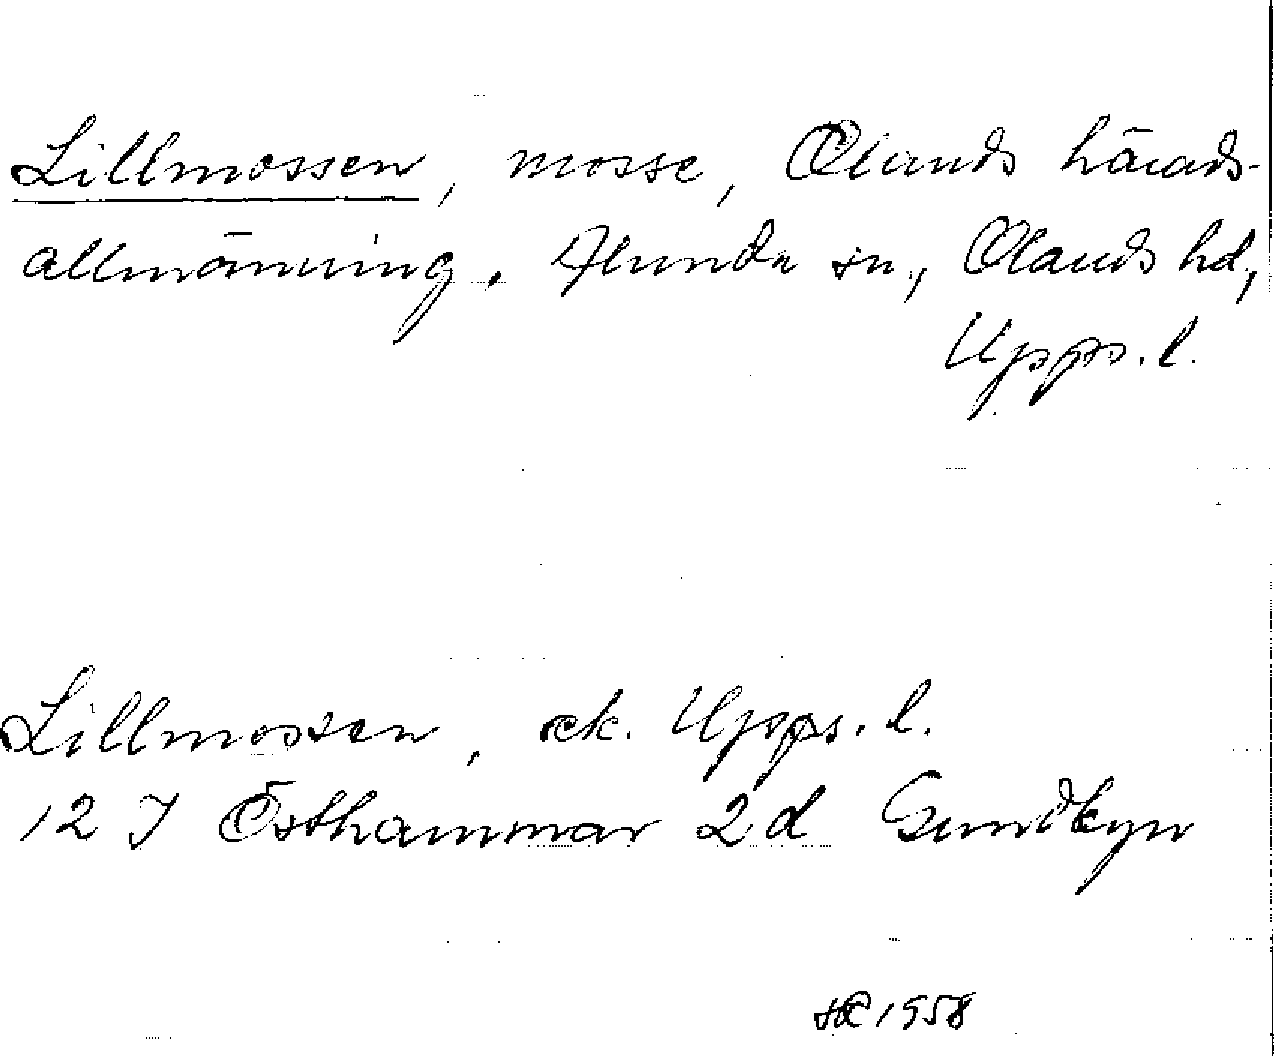 Lillmossen, mosse, Olands härads-
allmänning. Alunda sn, Olands hd,
Upps. l.
Lillmossen, ek. Upps. l.
12 I Östhammar 2d Sundbyn
1958